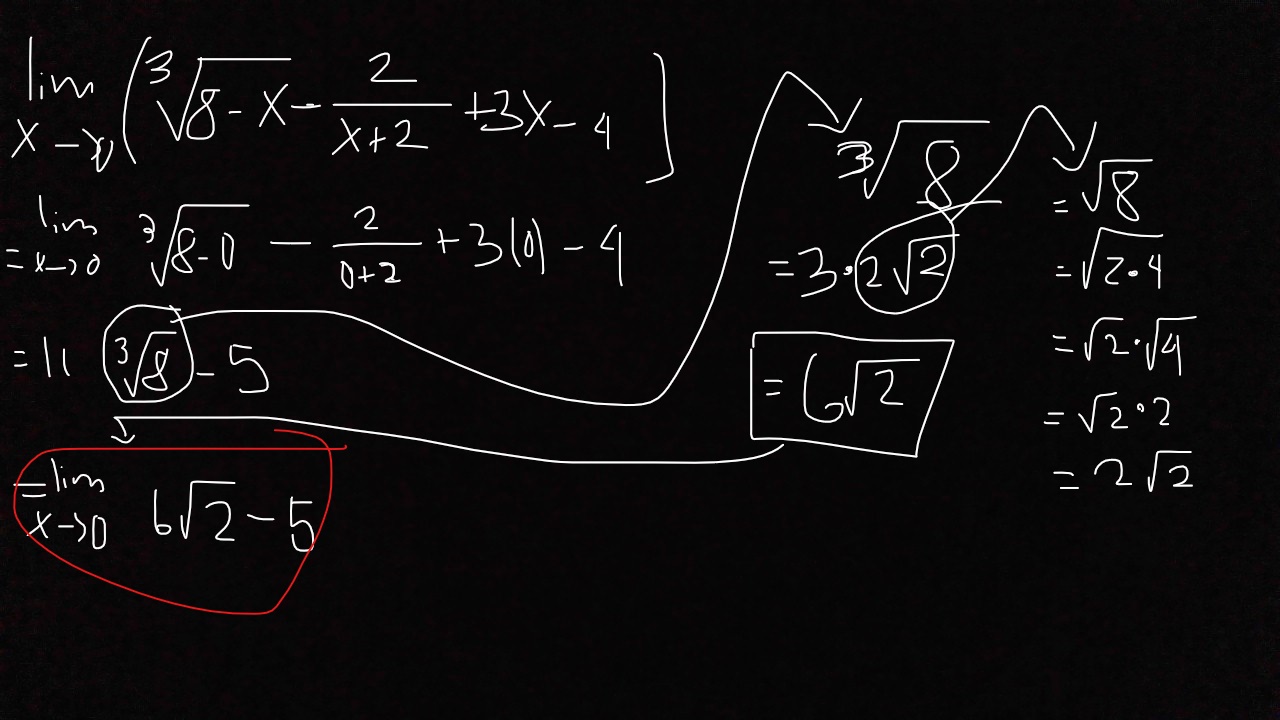 lim x→0 (∛(8-x) - 2/(x+2) + 3x - 4)
= lim x→0 ∛(8-0) - 2/(0+2) + 3(0) - 4
= 11 ∛8 - 5
= lim x→0 6√2 - 5
3√8
= 3·2√2
= 6√2
= √8
= √(2·4)
= √2·√4
= √2·2
= 2√2